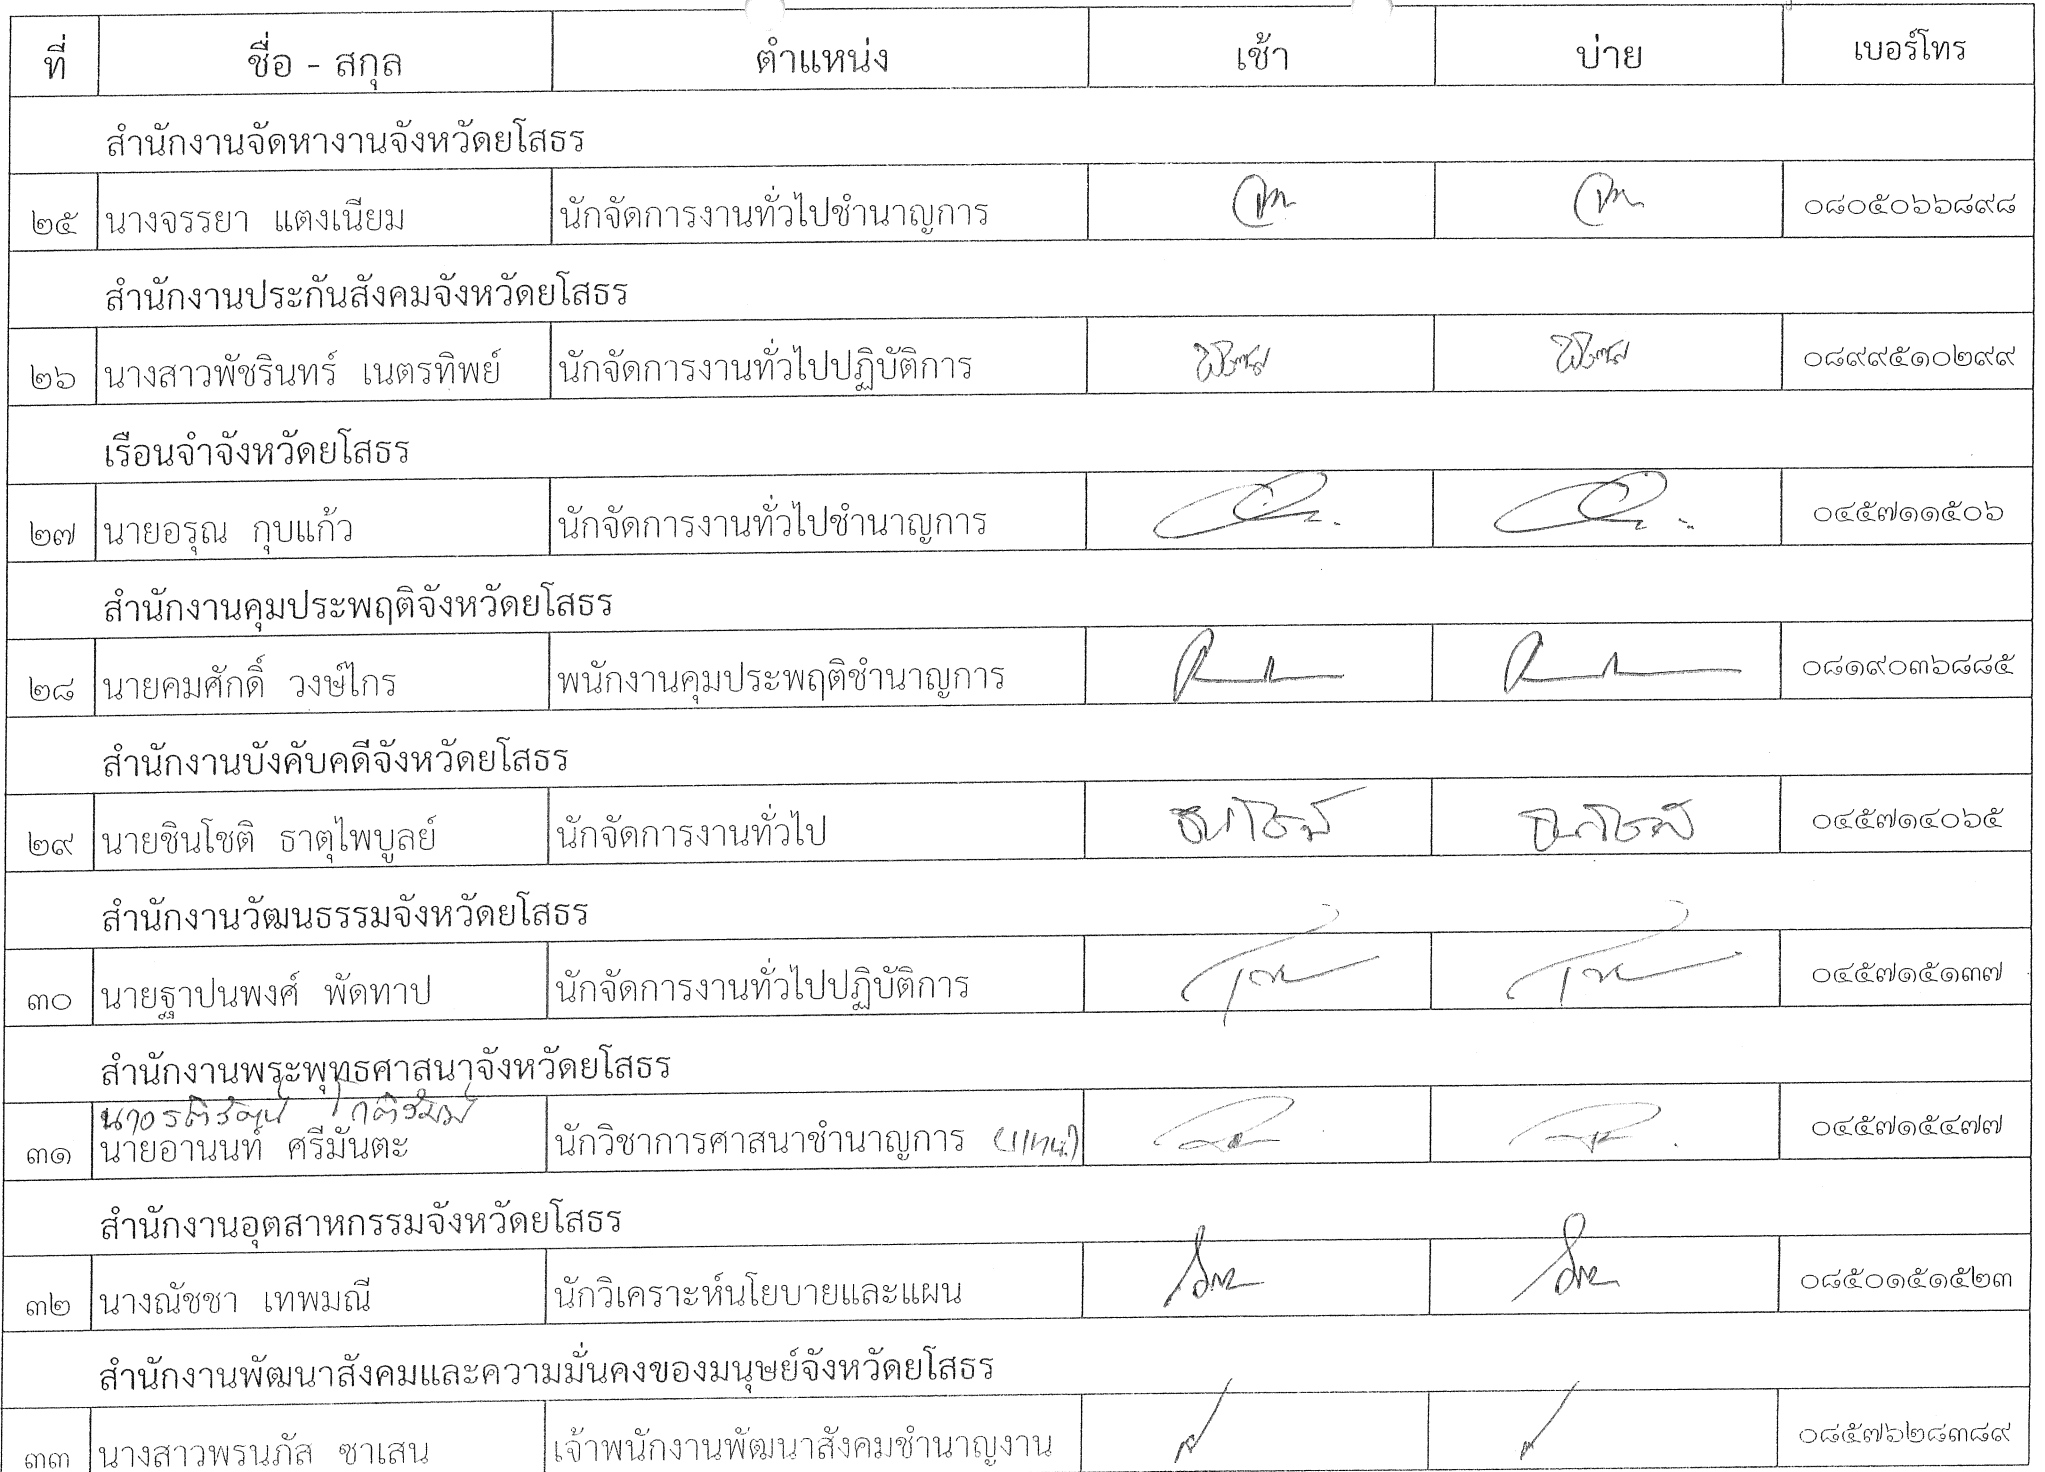 ที่ ชื่อ - สกุล ตำแหน่ง เช้า บ่าย เบอร์โทร
สำนักงานจัดหางานจังหวัดยโสธร
๒๕ นางจรรยา แตงเนียม นักจัดการงานทั่วไปชำนาญการ ๐๘๐๕๐๖๖๘๙๘
สำนักงานประกันสังคมจังหวัดยโสธร
๒๖ นางสาวพัชรินทร์ เนตรทิพย์ นักจัดการงานทั่วไปปฏิบัติการ ๐๘๙๙๕๑๐๒๙๙
เรือนจำจังหวัดยโสธร
๒๗ นายอรุณ กุบแก้ว นักจัดการงานทั่วไปชำนาญการ ๐๔๕๗๑๑๕๐๖
สำนักงานคุมประพฤติจังหวัดยโสธร
๒๘ นายคมศักดิ์ วงษ์ไกร พนักงานคุมประพฤติชำนาญการ ๐๘๑๙๐๓๖๘๘๕
สำนักงานบังคับคดีจังหวัดยโสธร
๒๙ นายชินโชติ ธาตุไพบูลย์ นักจัดการงานทั่วไป ๐๔๕๗๑๔๐๖๕
สำนักงานวัฒนธรรมจังหวัดยโสธร
๓๐ นายฐาปนพงศ์ พัดทาป นักจัดการงานทั่วไปปฏิบัติการ ๐๔๕๗๑๕๑๓๗
สำนักงานพระพุทธศาสนาจังหวัดยโสธร
๓๑ นายอานนท์ ศรีมันตะ นักวิชาการศาสนาชำนาญการ (แทน) ๐๔๕๗๑๕๔๗๗
สำนักงานอุตสาหกรรมจังหวัดยโสธร
๓๒ นางณัชชา เทพมณี นักวิเคราะห์นโยบายและแผน ๐๘๕๐๑๕๑๕๒๓
สำนักงานพัฒนาสังคมและความมั่นคงของมนุษย์จังหวัดยโสธร
๓๓ นางสาวพรนภัส ซาเสน เจ้าพนักงานพัฒนาสังคมชำนาญงาน ๐๘๕๗๖๒๘๓๘๙